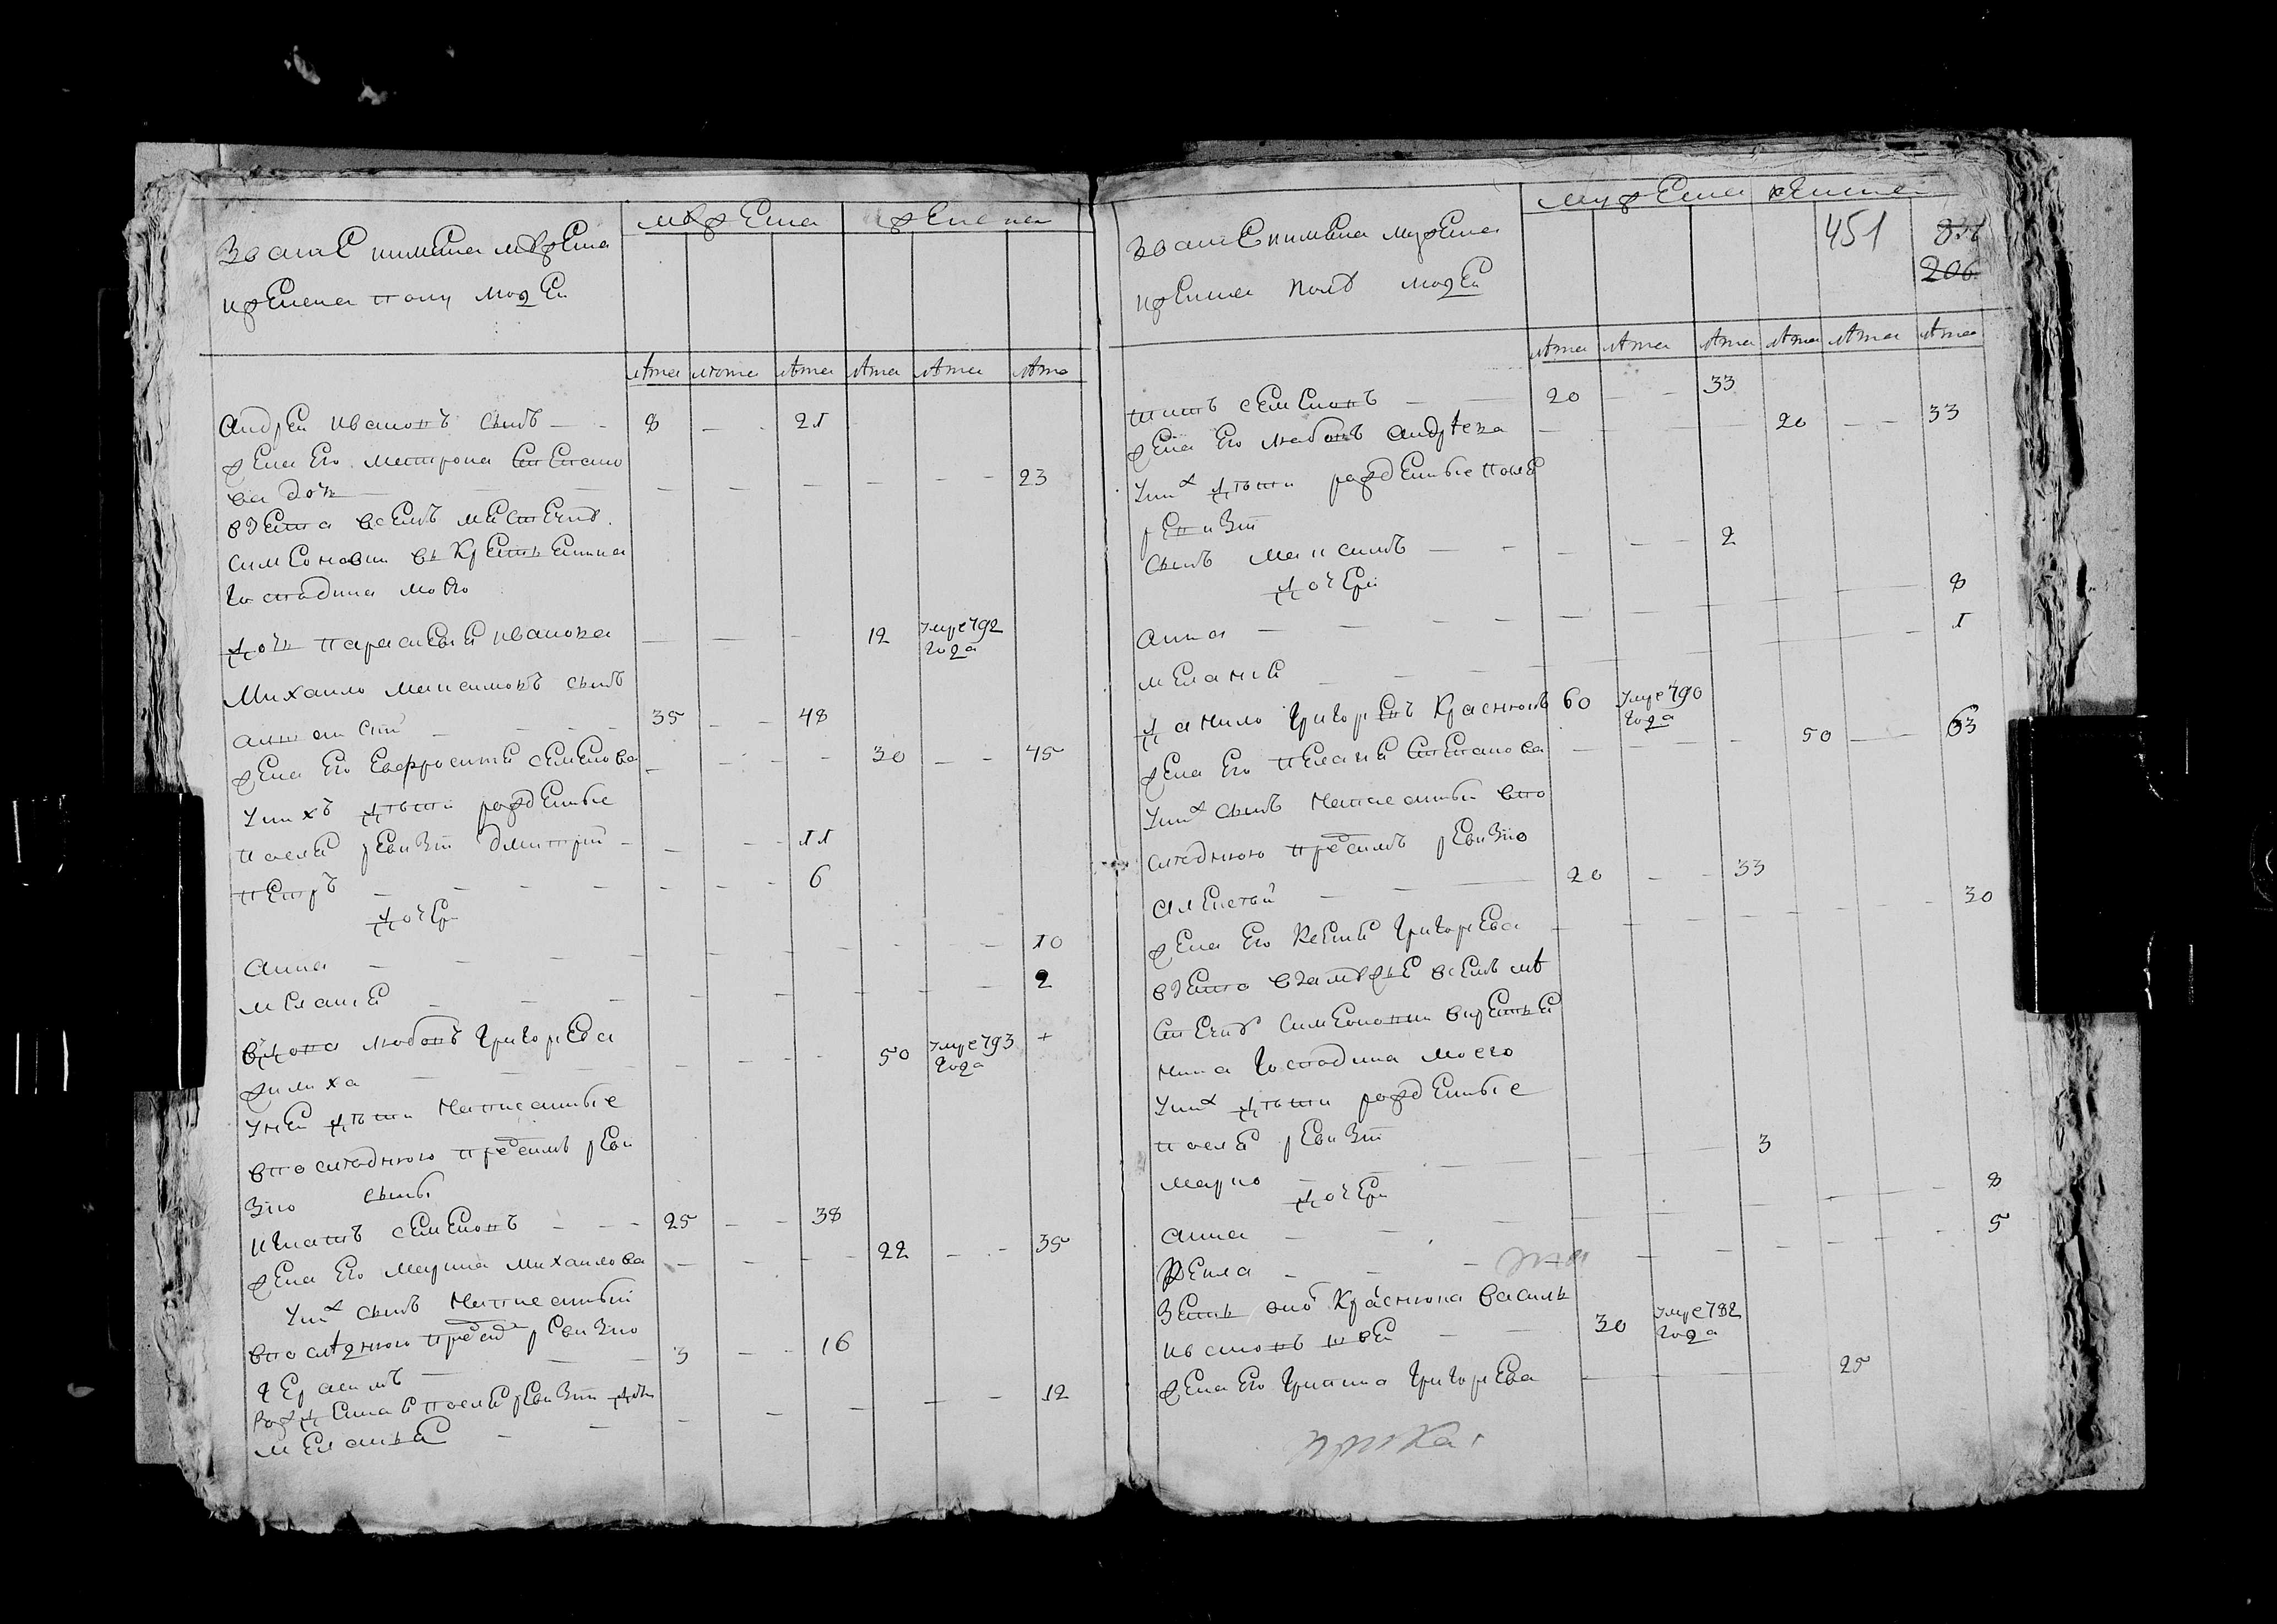 звание и имена мужеска
и женска полу людей
мужеска женска
лета лета лета лета лета лета
Андрей Ивановъ сынъ — — 8 — — 21
жена его Матрона Степано
ва дочь — — — — — — — — 23
взета в семъ местечке
Симеоновки ис крестьянина
господина моего
дочь Парасковия Иванова — — — 12 умре 792 года
Михайло Максимовъ сынъ
35 — — 48
жена его Евфросиния Семенова — — — — 30 — — 45
у нихъ дети рожденные
после ревизии Дмитрий — — — — 11
Петръ — — — — — — — 6
дочери
Анна — — — — — — — — 10
Мелания — — — — — — — — 2
вдова Любовь Григорева
— — — — — 50 умре 793 года +
у ней дети написанные
в последнюю пред симъ реви
зию сыны
Игнатъ Семеновъ — — — 25 — — 38
жена его Марина Михайлова — — — — 22 — — 35
у них сынъ написанный
в последнюю пред сим ревизию
Герасимъ — — — 3 — — 16
рожденная после ревизии дочь
Мелания — — — — — — — 12
звание и имена мужеска
и женска полъ людей
мужеска женска
451
206
лета лета лета лета лета лета
Титъ Семеновъ — — 20 — — 33
жена его Любовь Андреева — — — — 20 — — 33
у них дети рожденные после
ревизии
сынъ Максимъ — — — — — 2
дочери
Анна — — — — — — — 8
Мелания — — — — — — 1
Данило Григоревъ Краснюкъ 60 умре 790 года
жена его Пелагия Степанова — — — — 50 — — 63
у них сынъ написанный в по
следнюю пред симъ ревизию
Алексей — — — 20 — — 33
жена его Ксения Григорева — — — — — — 30
взета в замужъе в семъ ме
стечке Симеоновки ис крестья
нина господина моего
у них дети рожденные
после ревизии
Марко — — — — 3
дочери
Анна — — — — — — 8
Фекла — — — — — — 5
зеть оного Краснюка Василь
Ивановъ — — 30 умре 782 года
жена его Ирина Григорева — — 25